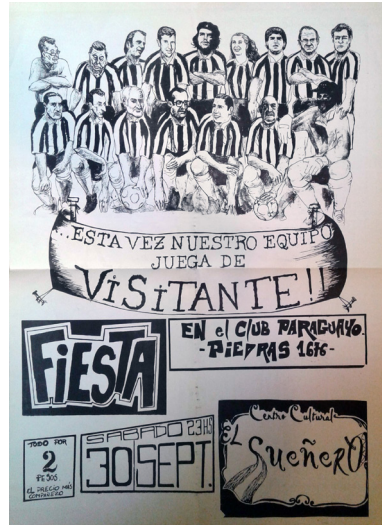 ...ESTA VEZ NUESTRO EQUIPO
JUEGA DE
VISITANTE!!
FIESTA
EN el Club PARAGUAYO.
-PIEDRAS 1676-
TODO POR
2
PESOS
EL PRECIO MAS
COMPAÑERO
SABADO 23HS
30 SEPT.
Centro Cultural
El Sueñero